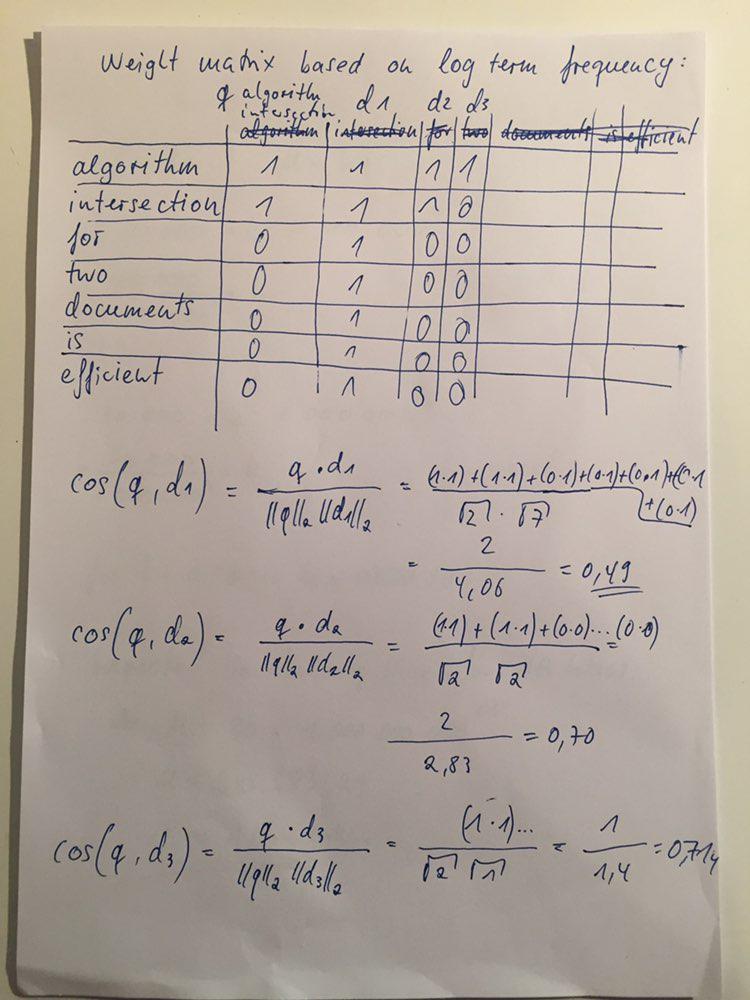 Weight matrix based on log term frequency:
q algorithm intersection d1 d2 d3
algorithm intersection for two documents is efficient
algorithm 1 1 1 1
intersection 1 1 1 0
for 0 1 0 0
two 0 1 0 0
documents 0 1 0 0
is 0 1 0 0
efficient 0 1 0 0
cos(q, d1) = q · d1 / ||q||2 ||d1||2 = (1·1)+(1·1)+(0·1)+(0·1)+(0·1)+(0·1 +(0·1) / √2 · √7
= 2 / 4,06 = 0,49
cos(q, d2) = q · d2 / ||q||2 ||d2||2 = (1·1)+(1·1)+(0·0)...(0·0) / √2 √2 =
2 / 2,83 = 0,70
cos(q, d3) = q · d3 / ||q||2 ||d3||2 = (1·1)... / √2 √1 = 1 / 1,4 =